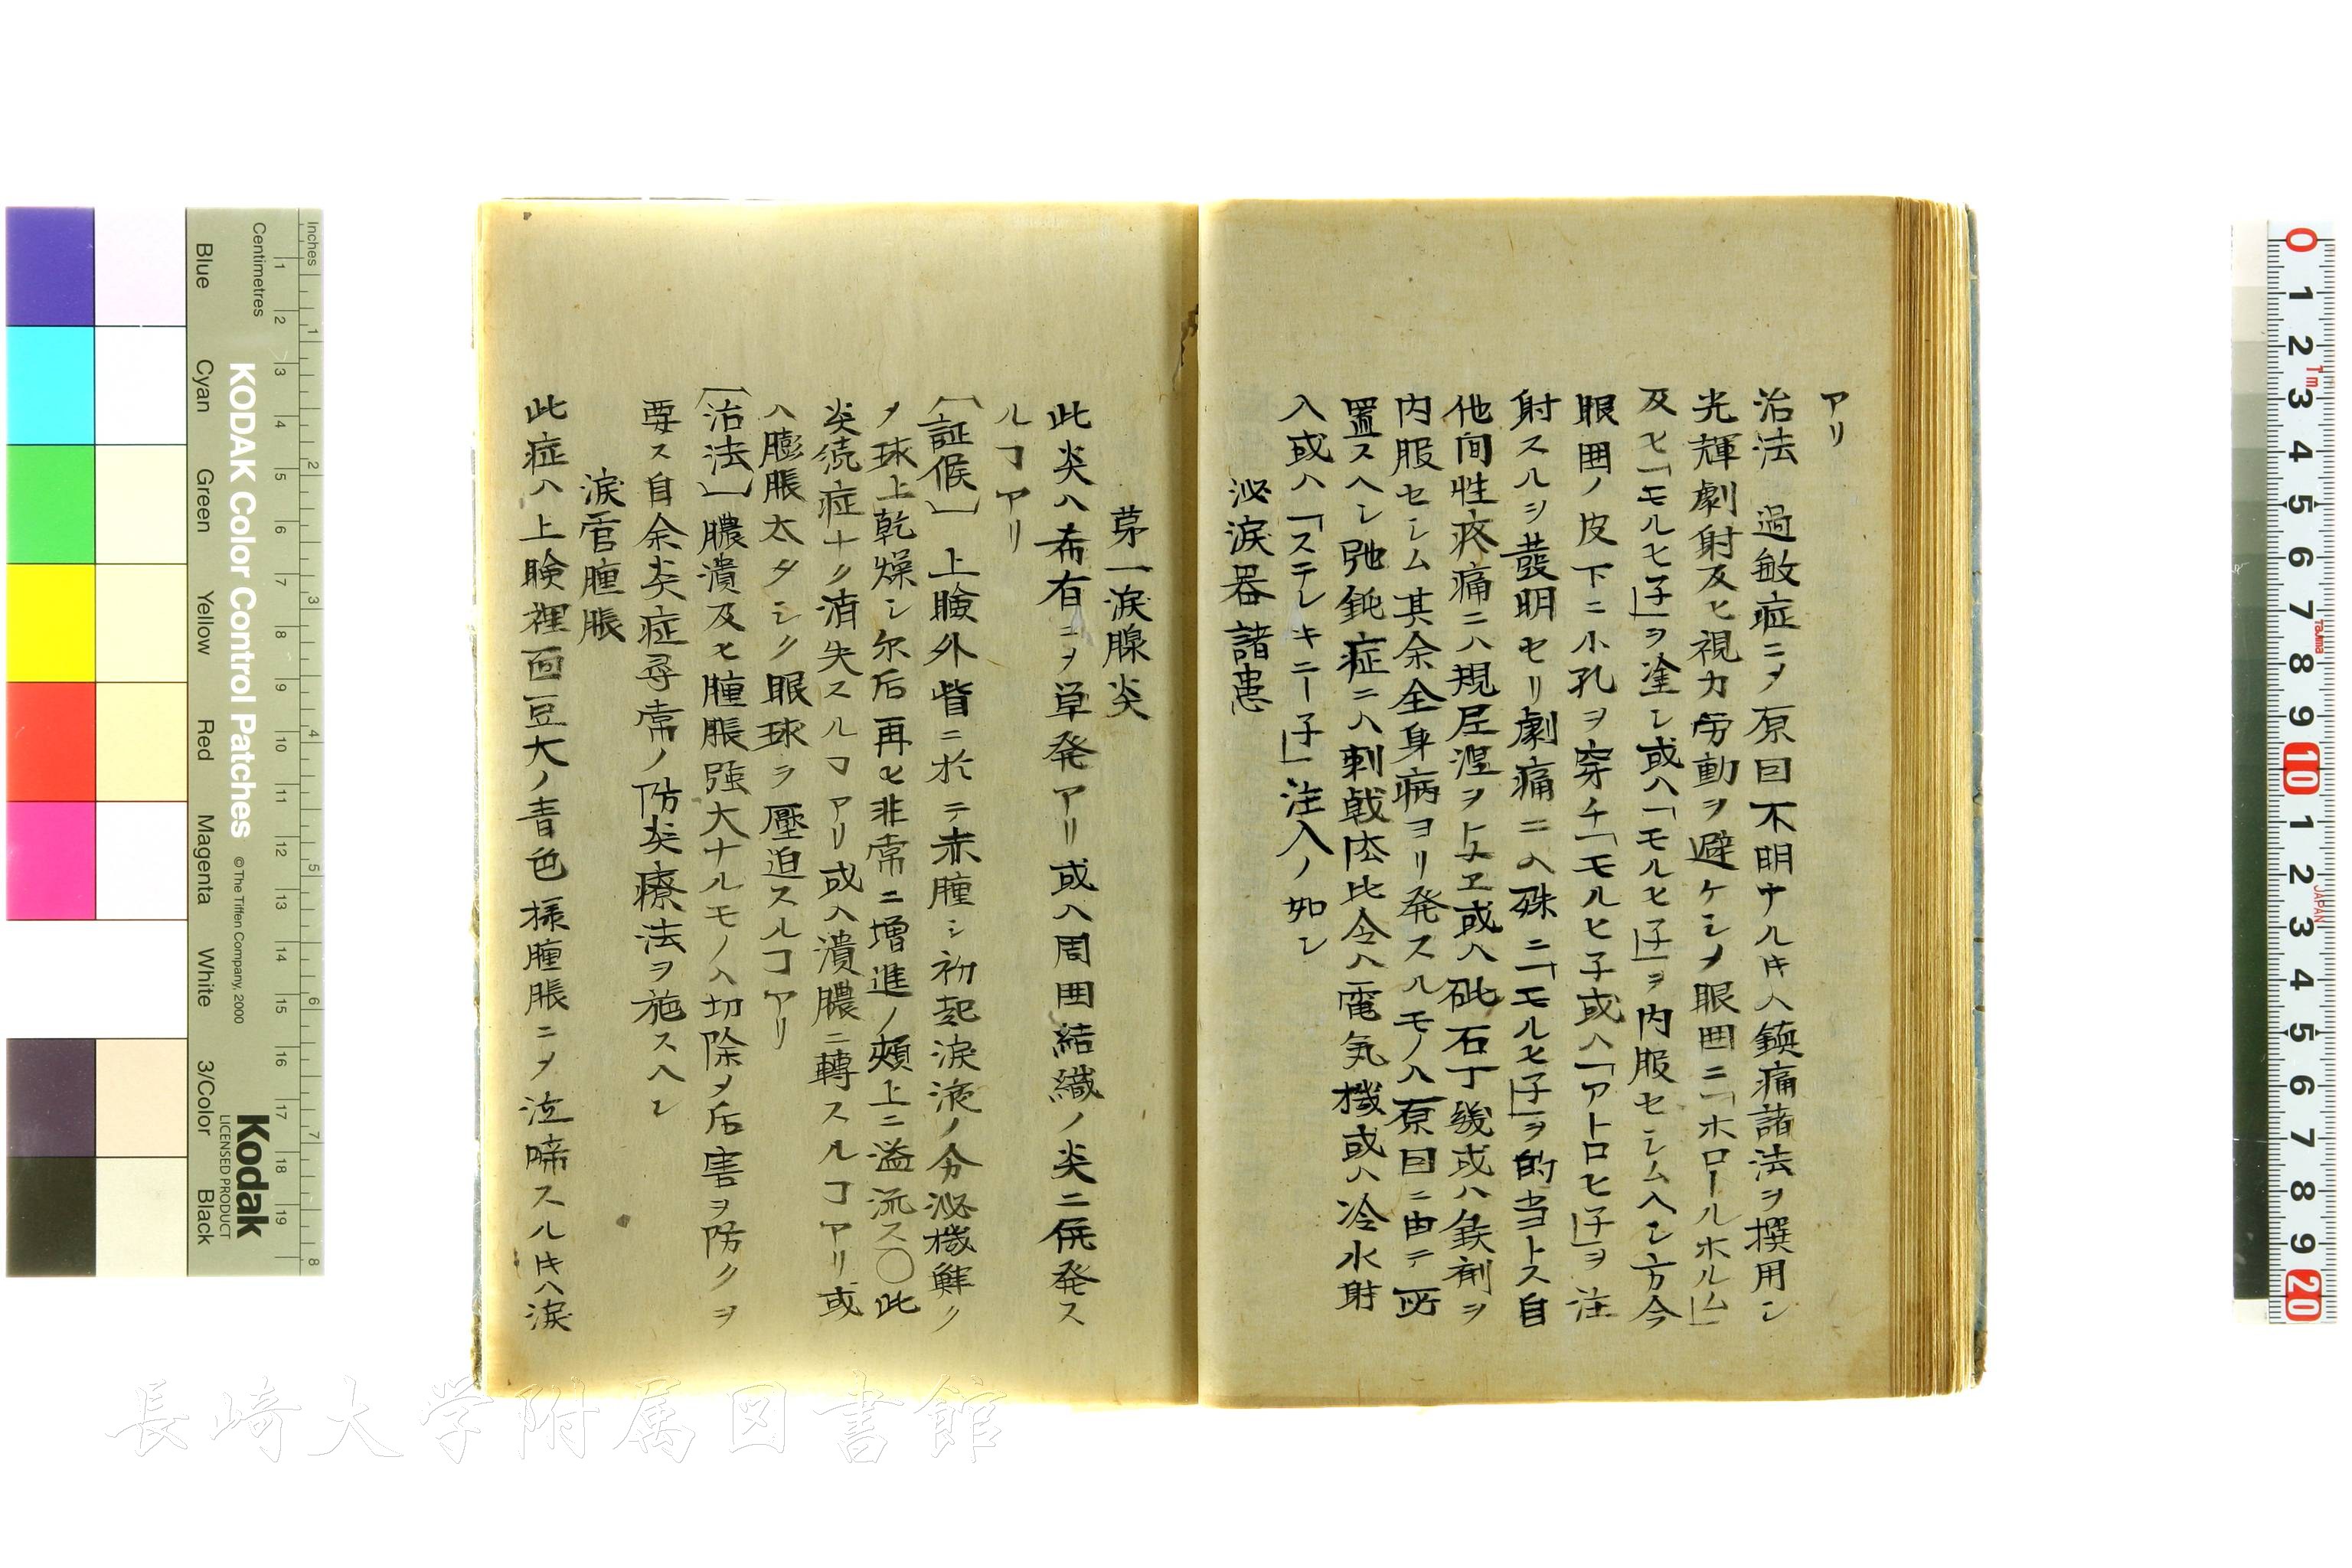 アリ
治法 過敏症ニ〆原因不明ナルキハ鎮痛諸法ヲ撰用シ
光輝劇射及ヒ視力労動ヲ避ケシメ眼囲ニ「ホロールホルム」
及ヒ「モルヒ子」ヲ塗シ或ハ「モルヒ子」ヲ内服セシムヘシ方今
眼囲ノ皮下ニ小孔ヲ穿チ「モルヒ子或ハ「アトロヒ子」ヲ注
射スルヲ發明セリ劇痛ニハ殊ニ「モルヒ子」ヲ的当トス自
他間性疼痛ニハ規尼涅ヲ与ヱ或ハ砒石丁幾或ハ鉄剤ヲ
内服セシム其余全身病ヨリ発スルモノハ原因ニ由テ所
置スヘシ弛鈍症ニハ刺戟依比令ハ電気機或ハ冷水射
入或ハ「ステレキニー子」注入ノ如シ
泌涙器諸患
茅一涙腺炎
此炎ハ希有ニ〆単発アリ或ハ周囲結織ノ炎ニ併発ス
ルコアリ
〔証候〕 上瞼外眥ニ於テ赤腫シ初起涙液ノ分泌機鮮ク
〆球上乾燥シ尓后再ヒ非常ニ増進ノ頬上ニ溢流ス○此
炎続症ナク消失スルコアリ或ハ潰膿ニ轉スルコアリ或
ハ膨脹太タシク眼球ヲ壓迫スルコアリ
〔治法〕膿潰及ヒ腫脹強大ナルモノハ切除〆后害ヲ防クヲ
要ス自余炎症尋常ノ防炎療法ヲ施スヘシ
涙管腫脹
此症ハ上瞼裡面豆大ノ青色様腫脹ニ〆泣啼スルキハ涙
長崎大学附属図書館
KODAK Color Control Patches
© The Tiffen Company, 2000
Kodak
LICENSED PRODUCT
Inches
Centimetres
Blue
Cyan
Green
Yellow
Red
Magenta
White
3/Color
Black
1 2 3 4 5 6 7 8
1 2 3 4 5 6 7 8 9 10 11 12 13 14 15 16 17 18 19
0 1 2 3 4 5 6 7 8 9 10 1 2 3 4 5 6 7 8 9 20
1m
Tajima
JAPAN